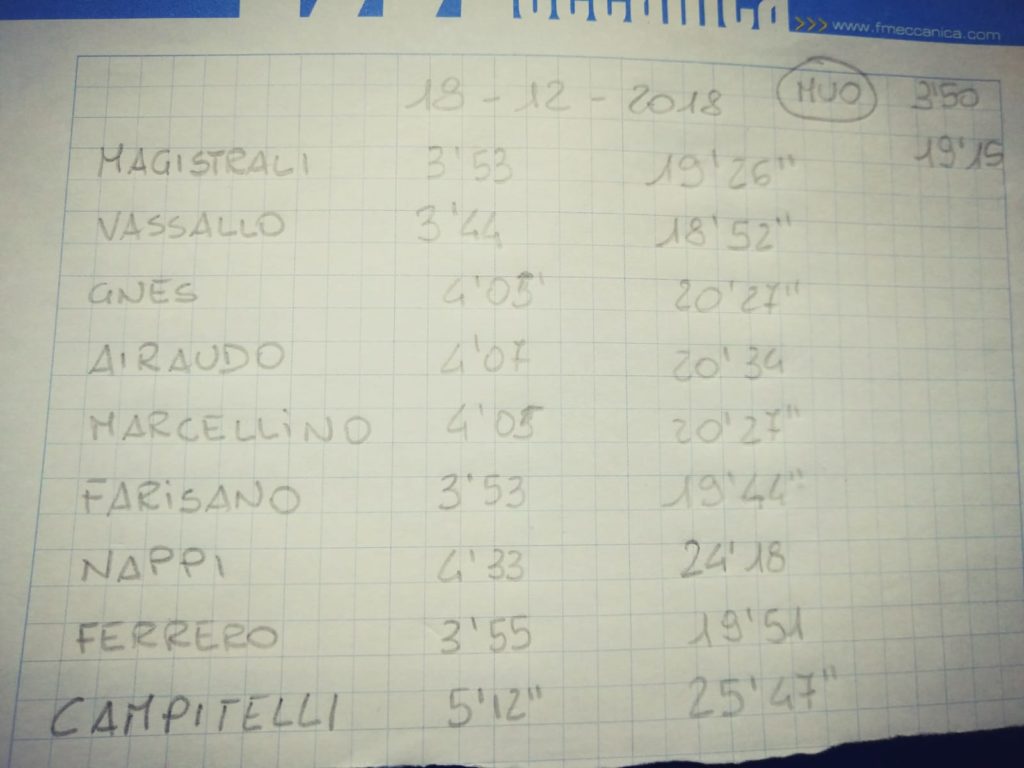 >>> www.fmeccanica.com
19-12-2018 MUO 3'50
19'15
MAGISTRALI 3'53 19'26"
VASSALLO 3'44 18'52"
GNES 4'05' 20'27"
AIRAUDO 4'07 20'34
MARCELLiNO 4'05 20'27"
FARiSANO 3'53 19'44"
NAPPI 4'33 24'18
FERRERO 3'55 19'51
CAMPITELLI 5'12" 25'47"